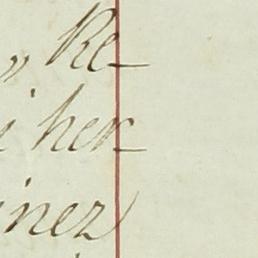 „ Re-
i her-
inez